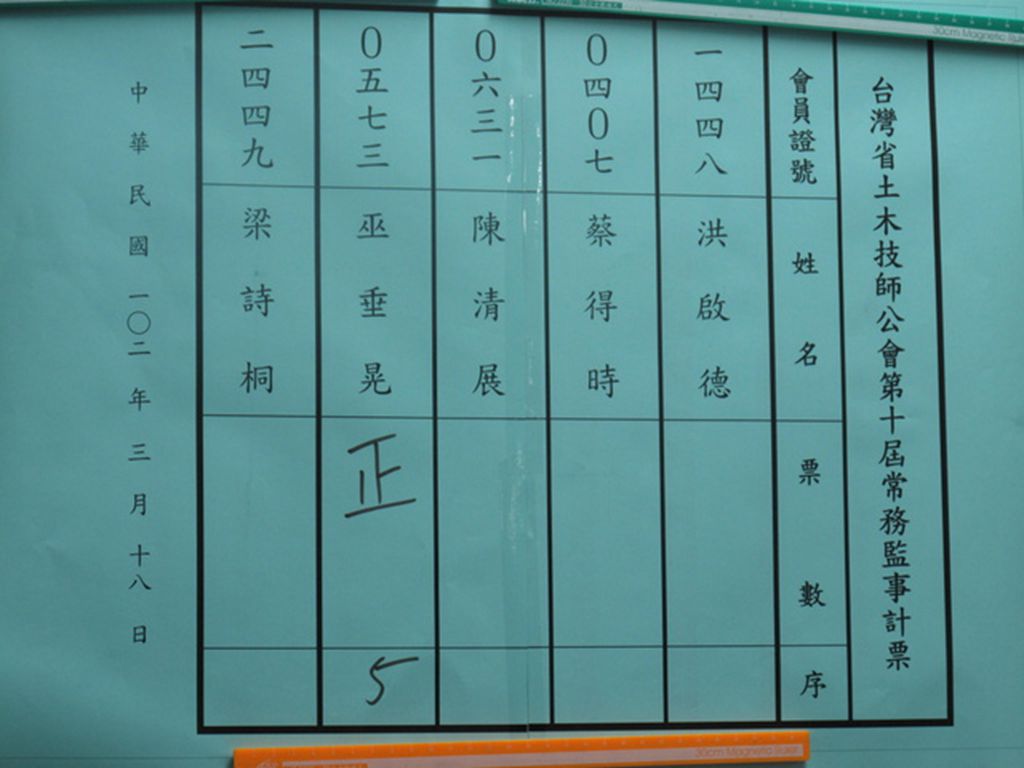 台灣省土木技師公會第十屆常務監事計票
會員證號
姓名
票數
序
一四四八
洪啟德
0四0七
蔡得時
0六三一
陳清展
0五七三
巫垂晃
正
5
二四四九
梁詩桐
中華民國一〇二年三月十八日
30cm Magnetic Ruler
30cm Magnetic Ruler